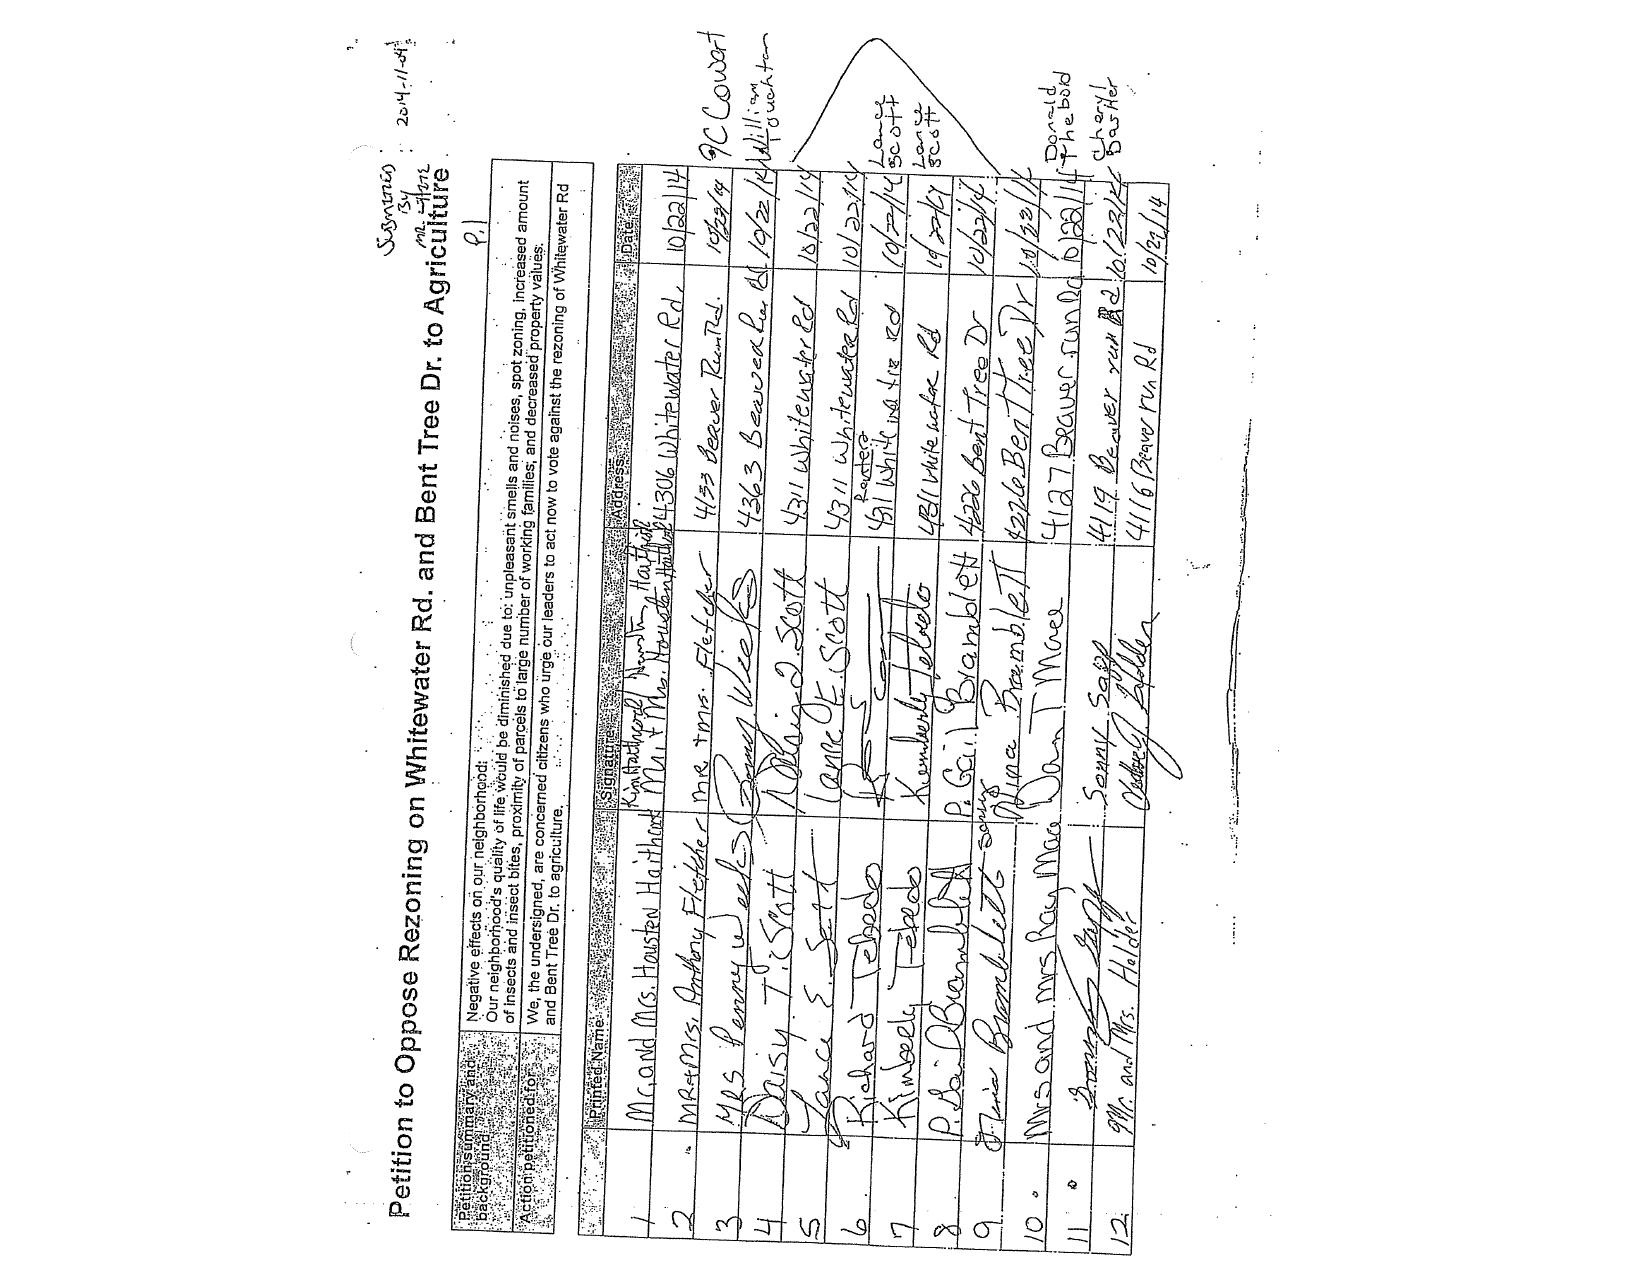 SUBMITTED
BY
MR.
2014-11-04
Petition to Oppose Rezoning on Whitewater Rd. and Bent Tree Dr. to Agriculture
P.1
Petition summary and background
Negative effects on our neighborhood:
Our neighborhood's quality of life would be diminished due to: unpleasant smells and noises, spot zoning, increased amount
of insects and insect bites, proximity of parcels to large number of working families; and decreased property values.
Action petitioned for
We, the undersigned, are concerned citizens who urge our leaders to act now to vote against the rezoning of Whitewater Rd
and Bent Tree Dr. to agriculture.
Printed Name Signature Address Date
1 Mr. and Mrs. Houston Haithcock Mr + Mrs. Houston 4306 Whitewater Rd. 10/22/14
2 MR & Mrs. Anthony Fletcher MR + Mrs. Fletcher 4133 Beaver Run Rd. 10/22/14 JC Cowart
3 Mrs Penny Weeks Penny Weeks 4363 Beaver Run Rd 10/22/14 William Toughton
4 Daisy T. Scott Scott 4311 Whitewater Rd 10/22/14
5 Lance E. Scott Lance E. Scott 4311 Whitewater Rd 10/22/14
Renters
6 Richard Teboedo 4311 White Rd 10/22/14 Lance Scott
7 Kimberly Teboedo Kimberly 4311 White water Rd 10/22/14 Lance Scott
8 P. Gail Bramblett 4226 Bent Tree Dr 10/22/14
9 Bramblett Nina Bramblett 4226 Bent Tree Dr 10/22/14
10 Mrs and mrs Ray Mace 4127 Beaver run Rd 10/22/14 Donald Thebold
11 Sonny 4119 Beaver run Rd 10/22/14 Cheryl
12 Mr. and Mrs. Holder 4116 Beaver run Rd 10/22/14